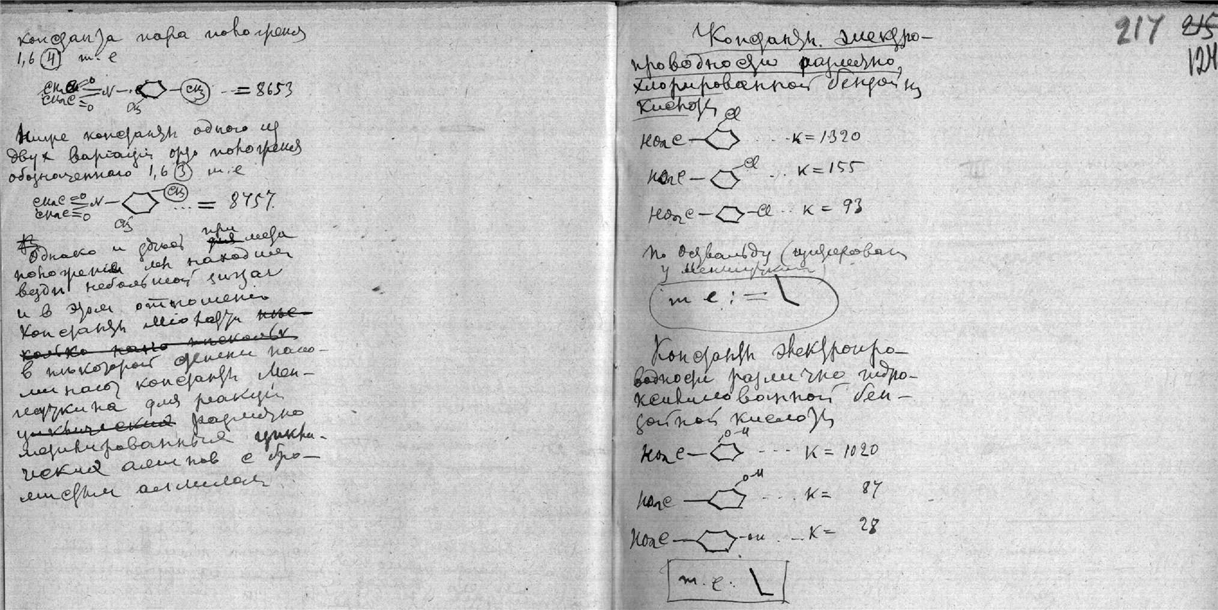 константа пара положения
1,6 (4) т. е
CH2C=O
CH2C=O N– –CH3 ... = 8653
CH3
Ниже константы одного из
двух вариаций орто положения
обозначенного 1,6 (3) т. е
CH2C=O
CH2C=O N– CH3 ... = 8757.
CH3
Однако и здесь при для мета
положения мы находим
везде небольшой зигзаг
и в этом отношении
константы Miolatti не-
сколько
в некоторой степени напо-
минают константы Мен-
шуткина для реакций
циклических различно
метилированных цикли-
ческих аминов с бро-
мистым аллилом
217 215
124
Константы электро-
проводности различно
хлорированной бензойной
кислоты
HO2C– Cl ... K = 1320
HO2C– Cl ... K = 155
HO2C– –Cl ... K = 93
по Оствальду (цитирован
у Меншуткина)
т е : =
Константы электропро-
водности различно гидро-
ксилированной бен-
зойной кислоты
HO2C– O–H ... K = 1020
HO2C– OH ... K = 87
HO2C– –OH ... K = 28
т. е.